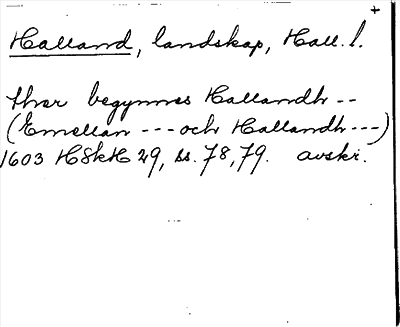 +
Halland, landskap, Hall. l.
ther begynnes Hallandh --
(Emellan --- och Hallandh ---)
1603 HSkH 29, ss. 78, 79. avskr.